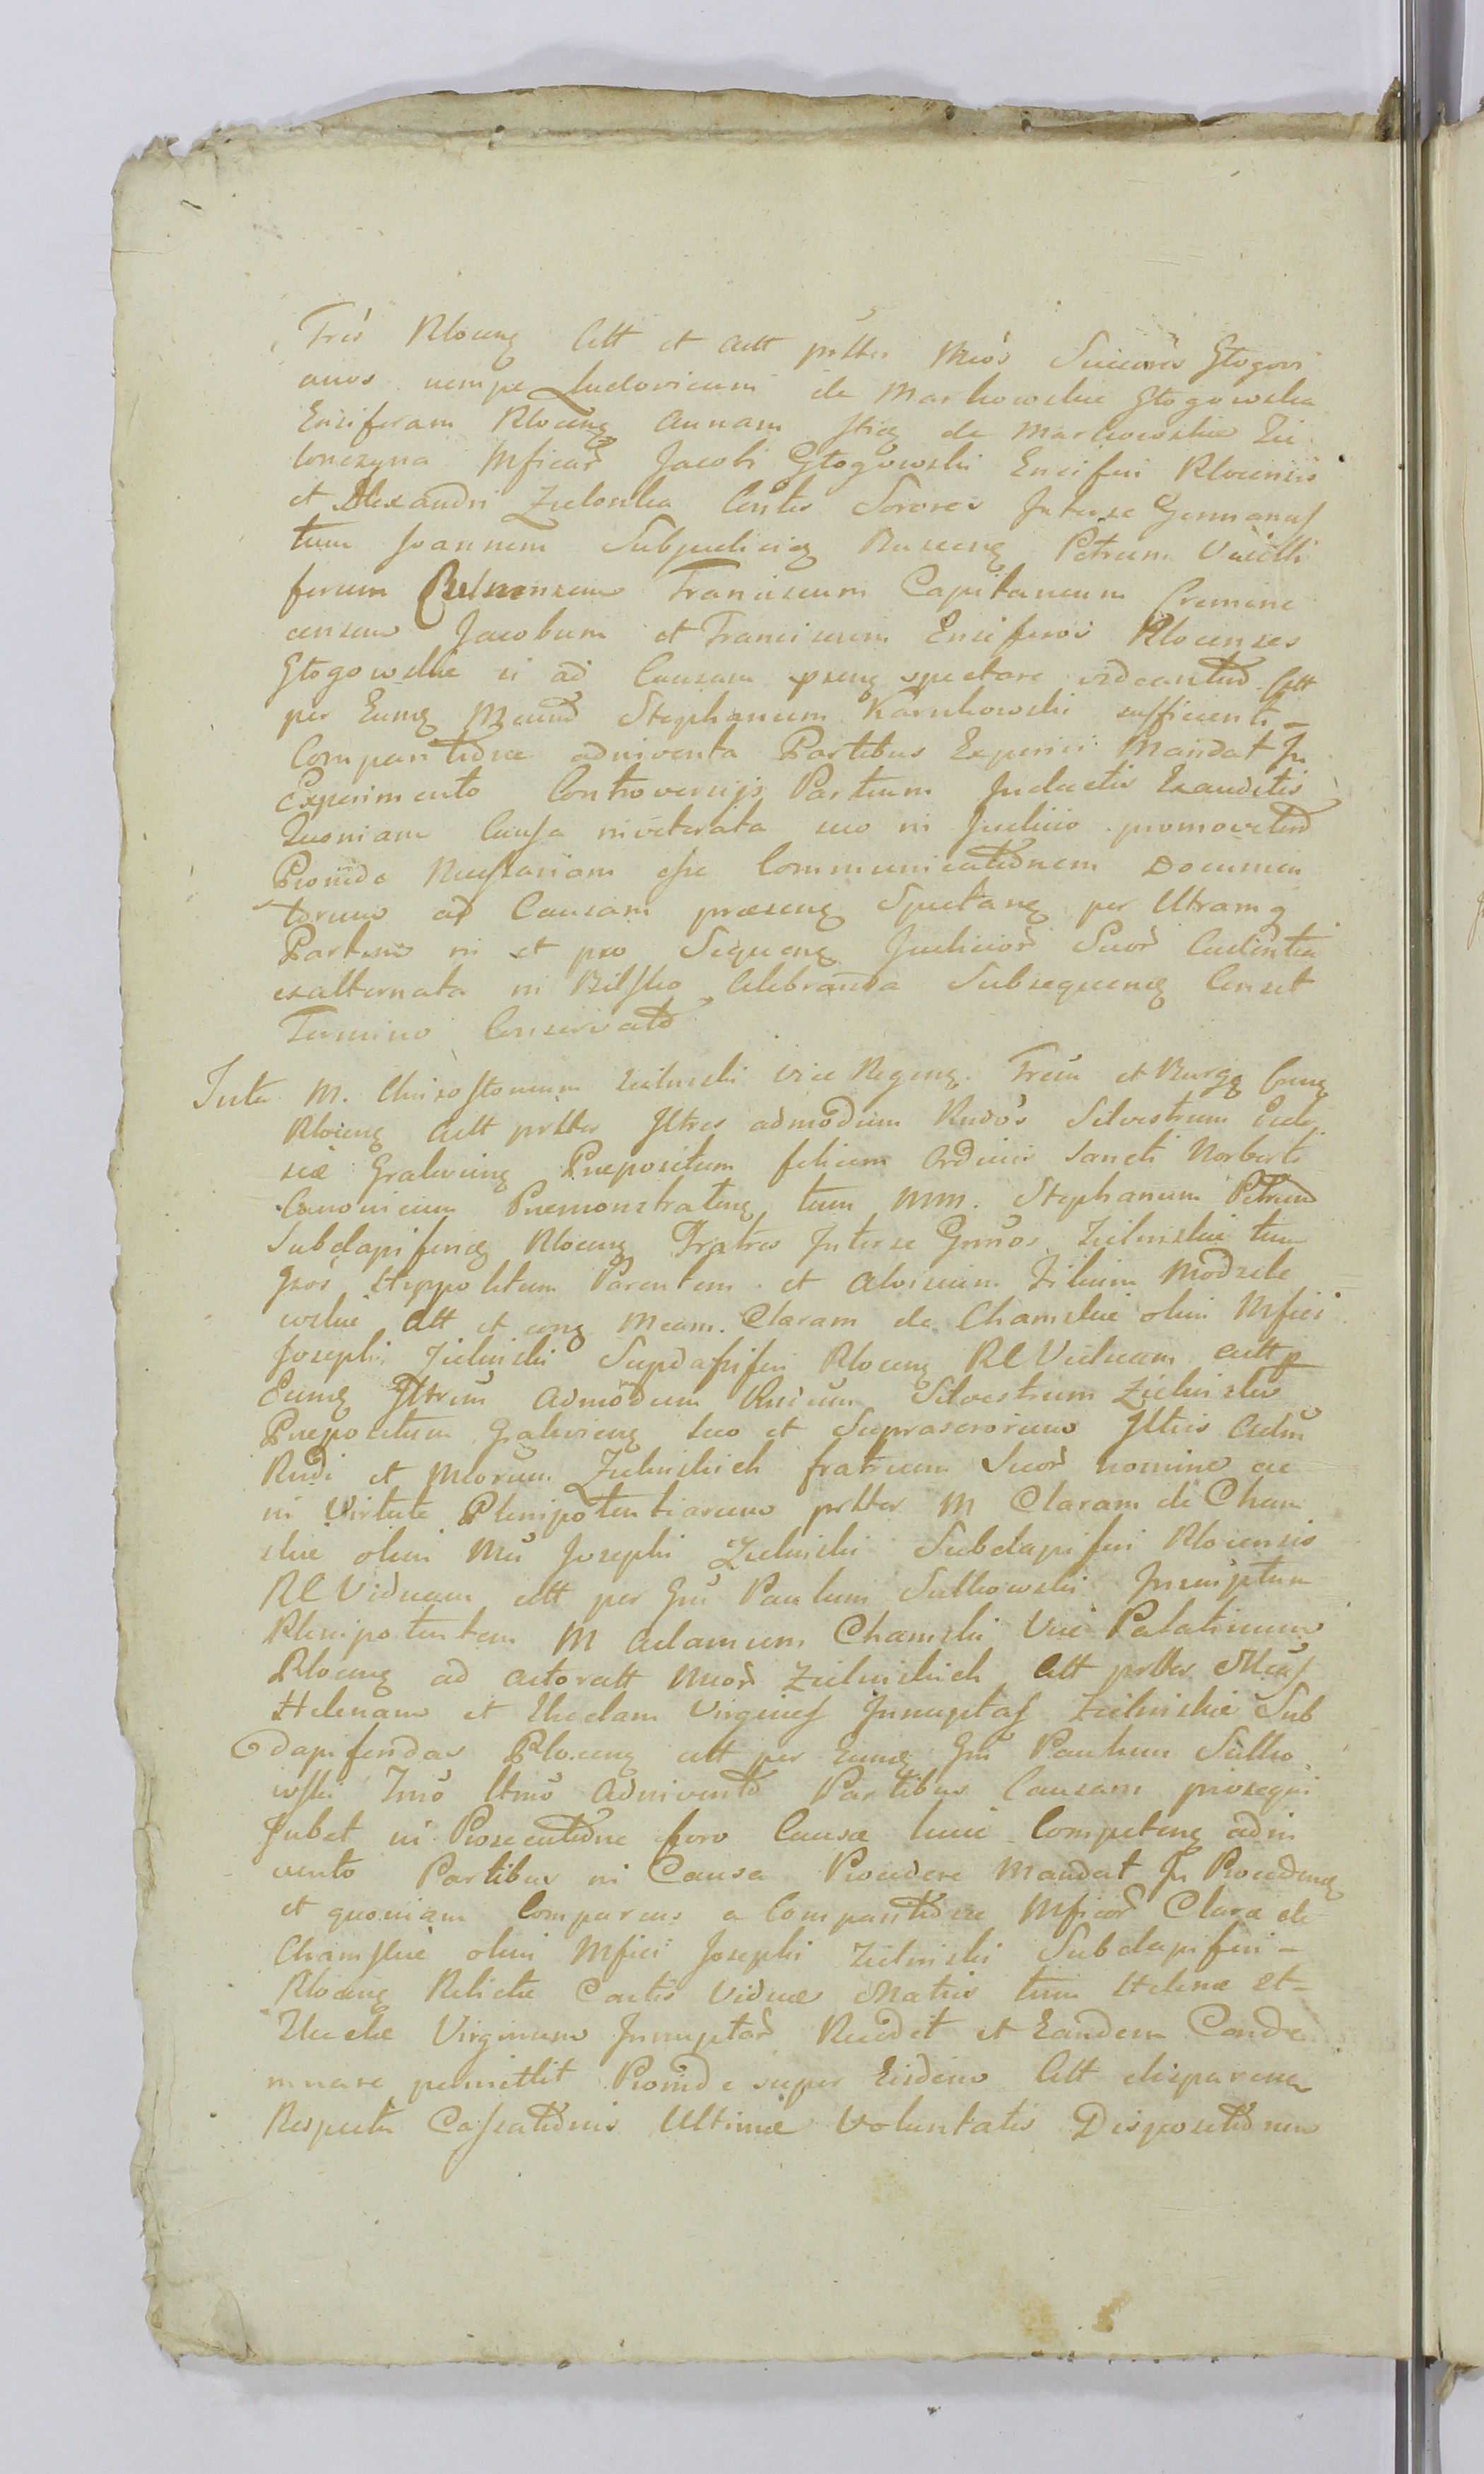 Tris Plocens Citt et Citt prtter Mcos Succores Głogovi
anos nempe Ludovicam de Markowskie Głogowska
Ensiferam Plocens Annam Stig de Markowskie Zie
lonczyna Mficar Jacobi Głogowski Ensiferi Plocensis
et Alexandri Zielonka Contes Sorores Interse Germanas
tum Joannem Subjudicig Ruscens Petrum Vexilli
ferum Franciscum Capitaneum Cremene
censem Jacobum et Franciscum Ensiferos Plocenses
Głogowskie si ad Causam psens spectare videantur Citt
per Eumq Mcum Stephanum Karnkowski sufficienti
Comparitione adinventa Partibus Experiri Mandat In
Experimento Controversijs Partium Inductis Exauditis
Quoniam Causa inveterata suo in Judicio promovetur
Proinde Necessariam esse Communicationem Documen
torum ad Causam præsens Spectans per Utramq
Partem in et pro Sequens Judicior Suor Cadentia
exalternata in Bilsko Celebranda Subsequens Censet
Termino Conservato
Inter M. Chrisostomum Zielinski Vice Regens Treum et Burgg Cens
Plocens Citt prtter Iltres admodum Rndos Silvestrum Eccle
siæ Gralevens Præpositum filium Ordinis Sancti Norberti
Canonicum Præmonstratens tum Mm. Stephanum Petrum
Subdapiferieg Plocens Fratres Interse Grnos Zielinskie tum
Gsos Hyppolitum Parentem et Aloisium Filium Modzele
wskie Citt et eong Mcam Claram de Chamskie olim Mfici
Josephi Zielinski Supdapiferi Plocens RC Viduam Citt p
Eumq Iltrem Admodum Rndum Silvestrum Zielinski
Præpositum Gralevieng suo et Suprascrorum Iltris Adm
Rndi et Mcorum Zielinskich fratrum Suor nomine ac
in Virtute Plenipotentiarum prtter M Claram de Cham
skie olim Mci Josephi Zielinski Subdapiferi Plocensis
RC Viduam Citt per Gm Paulum Sulkowski Inscriptum
Plenipotentem M Adamum Chamski Vice Palatinum
Plocens ad actoratt Mcor Zielinskich Citt prtter Mcas
Helenam et Theclam Virgines Innuptas Zielinskie Sub
dapiferidas Plocens Citt per Eumq Gm Paulum Sulko
wski Imo Itmo Adinvento Partibus Causam prosequi
Jubet in Prosecutione foro Causæ huic Competens adin
vento Partibus in Causa Procedere Mandat In Procedeng
et quoniam Comparens a Comparitione Mficæ Claræ de
Chamskie olim Mfici Josephi Zielinski Subdapiferi
Plocens Relictæ Contis Viduæ Matris tum Helenæ et
Theclæ Virginum Innuptar Recedit et Eandem Conde
mnare permittit Proinde super Eisdem Citt disparens
Respectu Cassationis Ultimæ Voluntatis Dispositionem